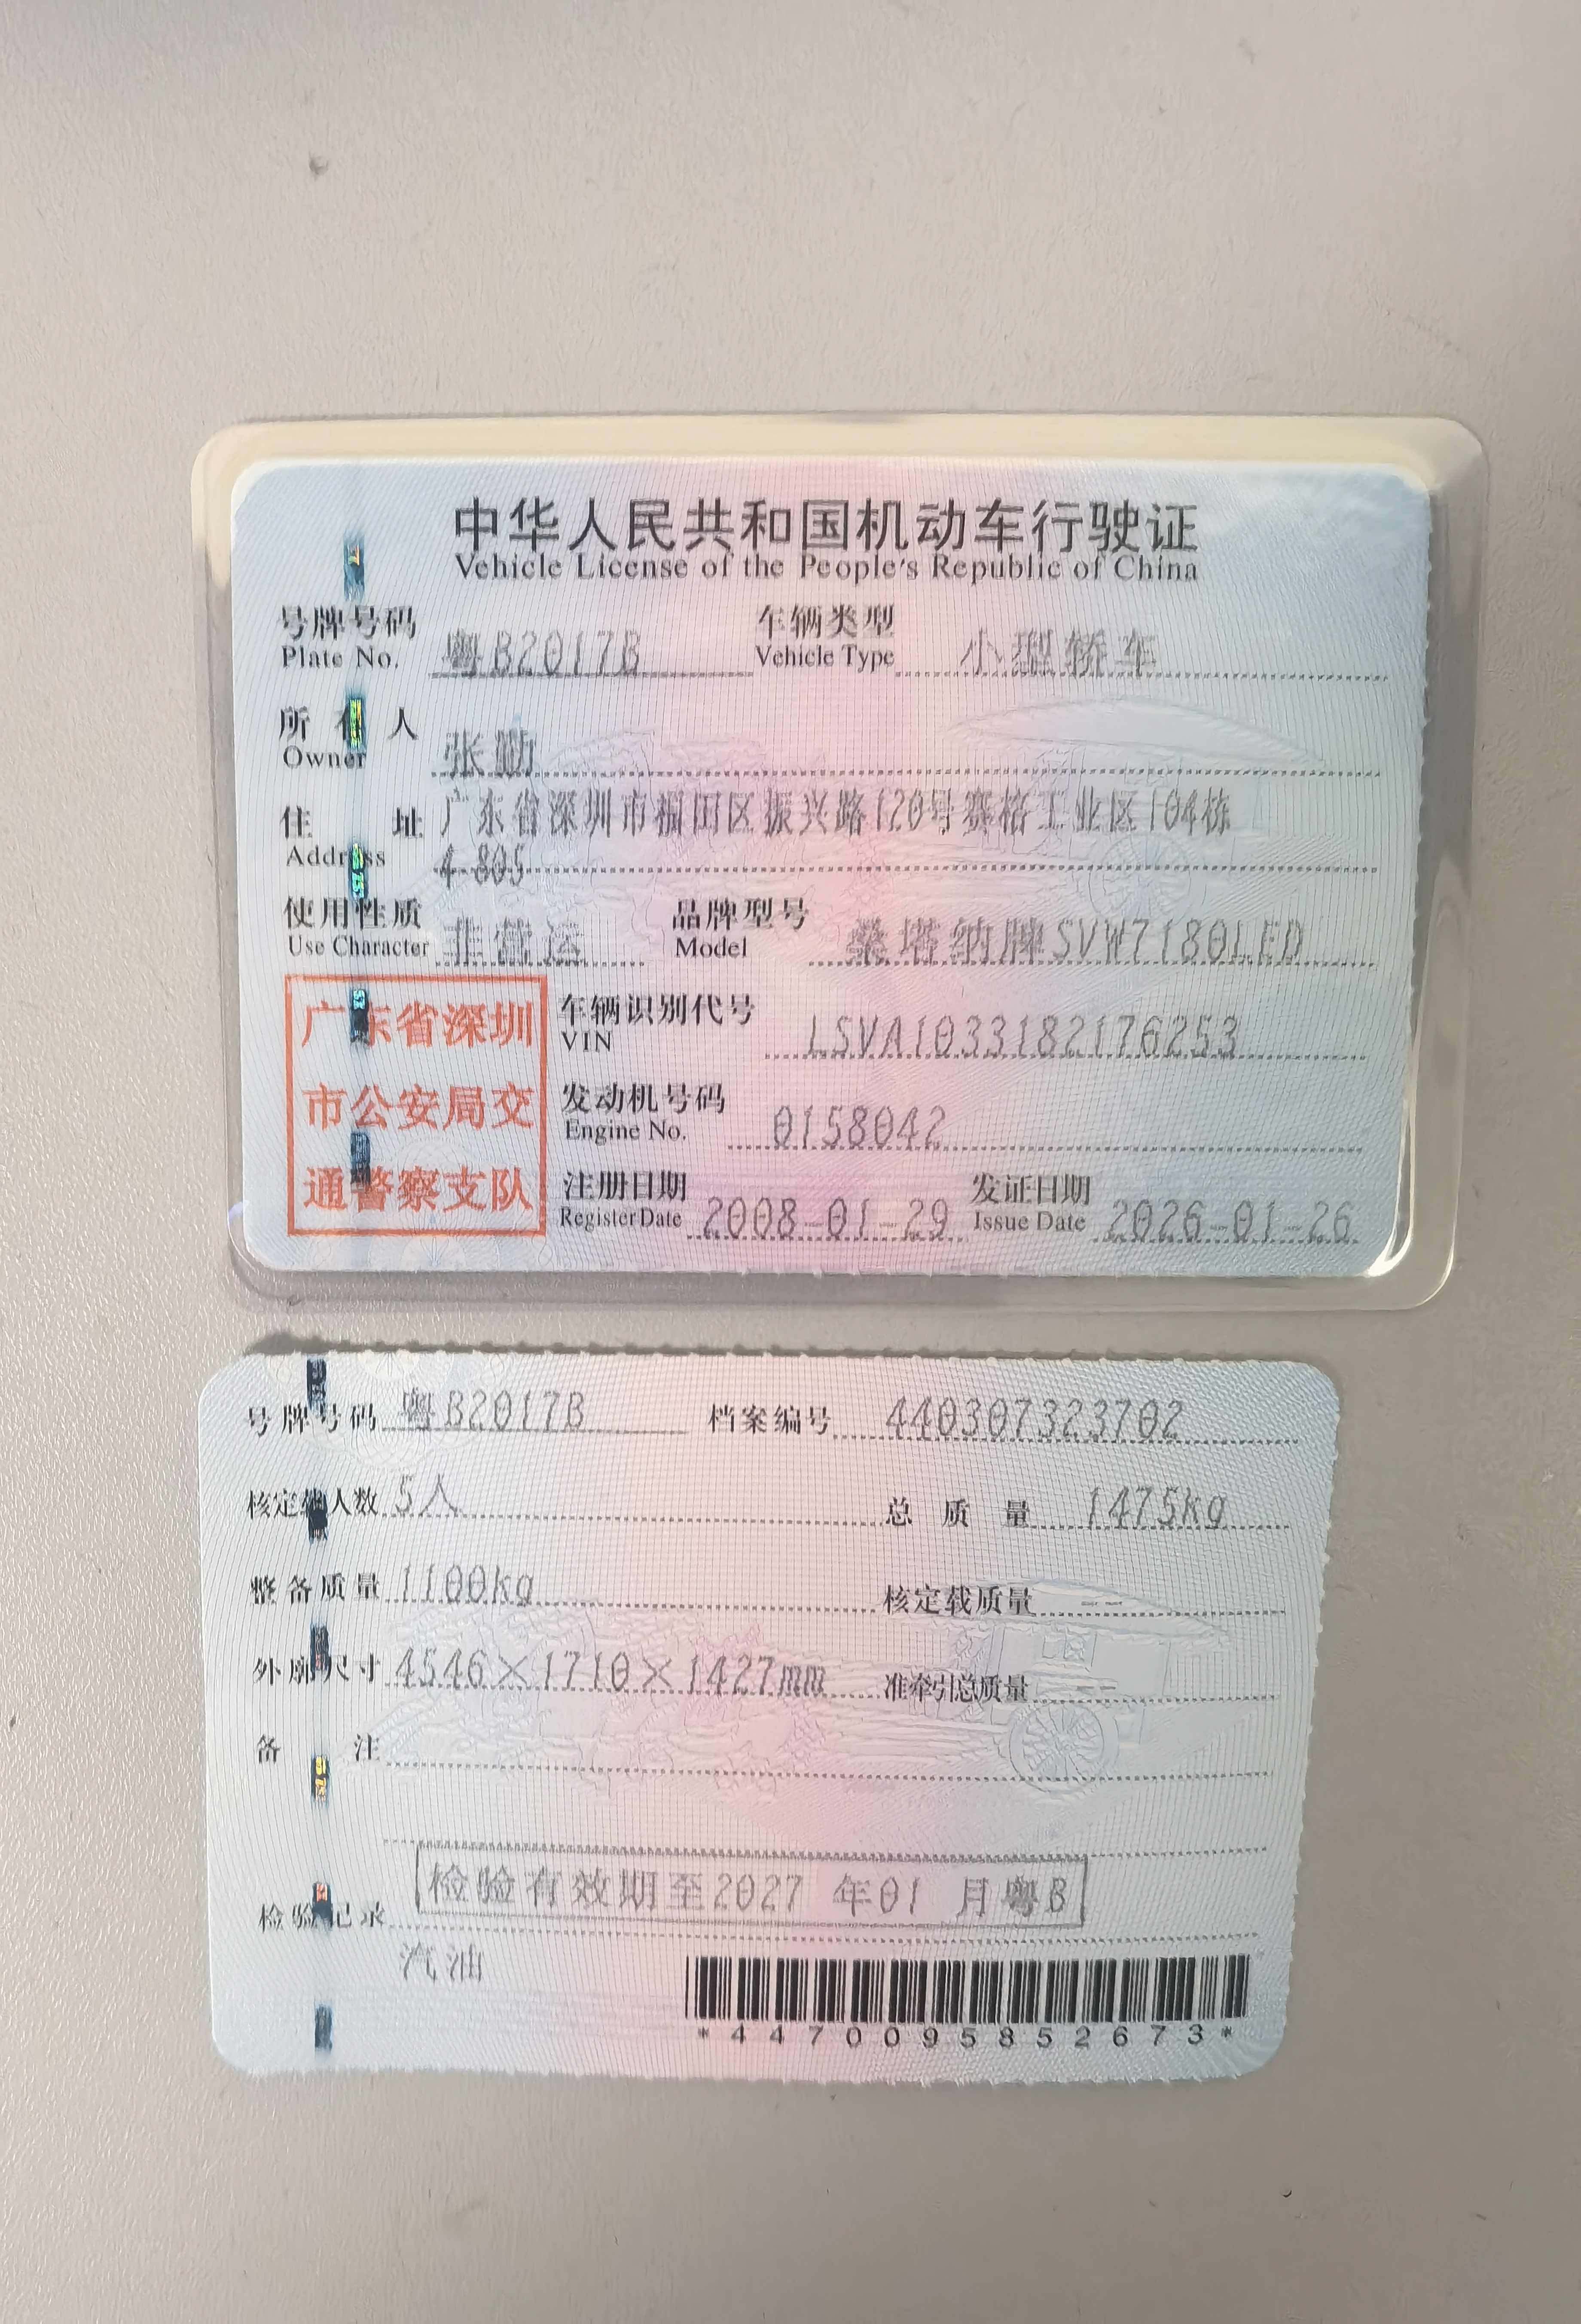 中华人民共和国机动车行驶证
Vehicle License of the People's Republic of China
号牌号码 粤B2017B 车辆类型 小型轿车
Plate No. Vehicle Type
所有人 张勤
Owner
住址 广东省深圳市福田区振兴路120号赛格工业区104栋
Address 4-805
使用性质 非营运 品牌型号 桑塔纳牌SVW7180LED
Use Character Model
广东省深圳
市公安局交
通警察支队
车辆识别代号 LSVA1033182176253
VIN
发动机号码 0158042
Engine No.
注册日期 2008-01-29 发证日期 2026-01-26
Register Date Issue Date
号牌号码 粤B2017B 档案编号 440307323702
核定载人数 5人 总质量 1475kg
整备质量 1100kg 核定载质量 --
外廓尺寸 4546×1710×1427mm 准牵引总质量 --
备注
检验记录 检验有效期至2027 年01 月粤B
汽油
*4470095852673*